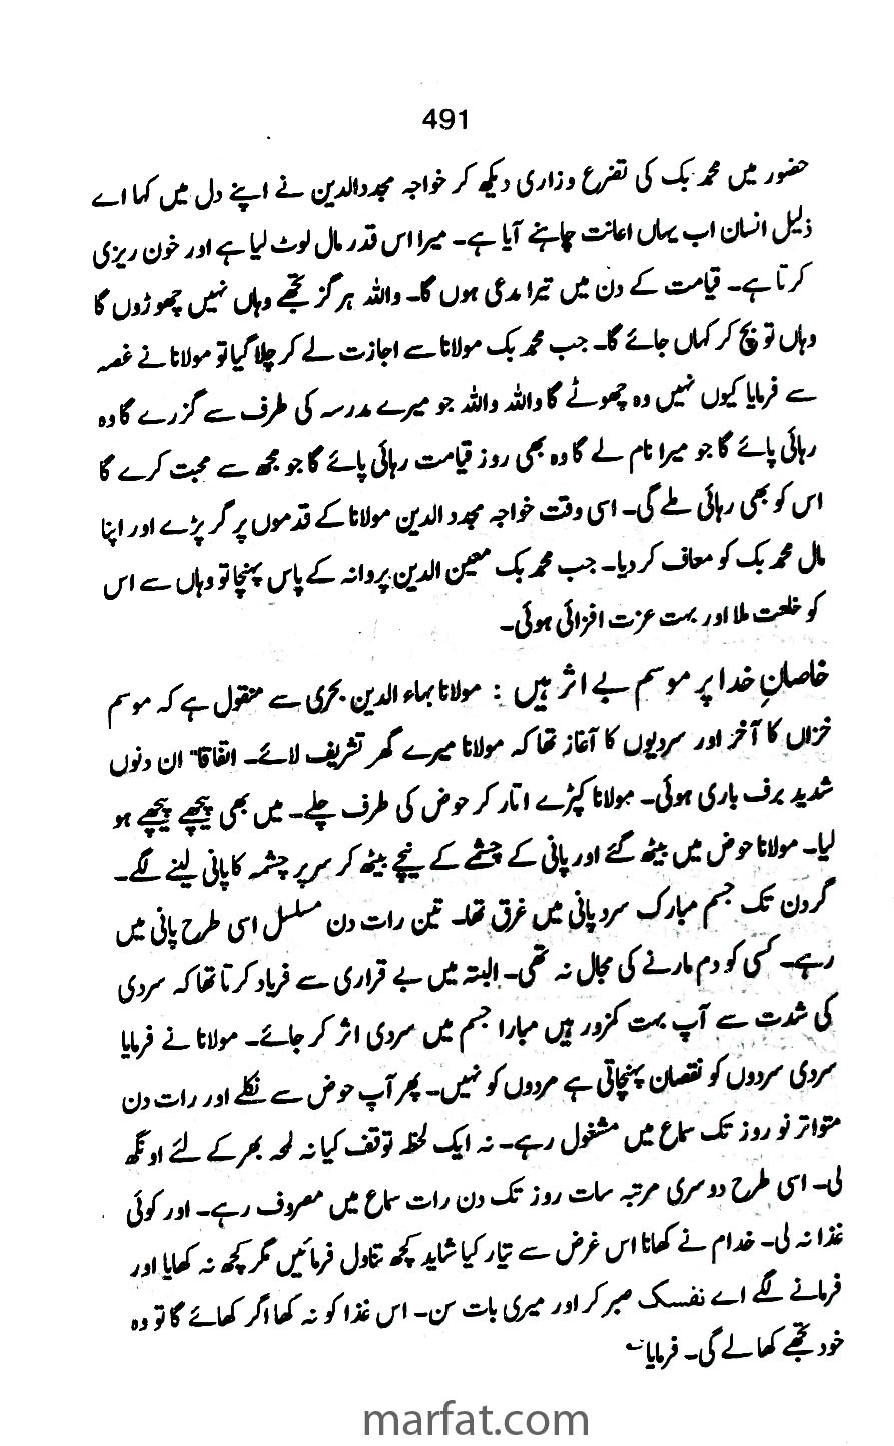 491
حضور میں محمد بک کی تضرع و زاری دیکھ کر خواجہ مجدد الدین نے اپنے دل میں کہا اے
ذلیل انسان اب یہاں اعانت چاہنے آیا ہے۔ میرا اس قدر مال لوٹ لیا ہے اور خون ریزی
کرتا ہے۔ قیامت کے دن میں تیرا مدعی ہوں گا۔ واللہ ہرگز تجھے وہاں نہیں چھوڑوں گا
وہاں تو بچ کر کہاں جائے گا۔ جب محمد بک مولانا سے اجازت لے کر چلا گیا تو مولانا نے غصہ
سے فرمایا کیوں نہیں وہ چھوٹے گا واللہ واللہ جو میرے مدرسہ کی طرف سے گزرے گا وہ
رہائی پائے گا جو میرا نام لے گا وہ بھی روز قیامت رہائی پائے گا جو مجھ سے محبت کرے گا
اس کو بھی رہائی ملے گی۔ اسی وقت خواجہ مجدد الدین مولانا کے قدموں پر گر پڑے اور اپنا
مال محمد بک کو معاف کر دیا۔ جب محمد بک معین الدین پروانہ کے پاس پہنچا تو وہاں سے اس
کو خلعت ملا اور بہت عزت افزائی ہوئی۔
خاصانِ خدا پر موسم بے اثر ہیں : مولانا بہاء الدین بحری سے منقول ہے کہ موسم
خزاں کا آخر اور سردیوں کا آغاز تھا کہ مولانا میرے گھر تشریف لائے۔ اتفاقاً ان دنوں
شدید برف باری ہوئی۔ مولانا کپڑے اتار کر حوض کی طرف چلے۔ میں بھی پیچھے پیچھے ہو
لیا۔ مولانا حوض میں بیٹھ گئے اور پانی کے چشمے کے نیچے بیٹھ کر سر پر چشمہ کا پانی لینے لگے۔
گردن تک جسم مبارک سرد پانی میں غرق تھا۔ تین رات دن مسلسل اسی طرح پانی میں
رہے۔ کسی کو دم مارنے کی مجال نہ تھی۔ البتہ میں بے قراری سے فریاد کرتا تھا کہ سردی
کی شدت سے آپ بہت کمزور ہیں مبارا جسم میں سردی اثر کر جائے۔ مولانا نے فرمایا
سردی سردوں کو نقصان پہنچاتی ہے مردوں کو نہیں۔ پھر آپ حوض سے نکلے اور رات دن
متواتر نو روز تک سماع میں مشغول رہے۔ نہ ایک لحظہ توقف کیا نہ لمحہ بھر کے لئے اونگھ
لی۔ اسی طرح دوسری مرتبہ سات روز تک دن رات سماع میں مصروف رہے۔ اور کوئی
غذا نہ لی۔ خدام نے کھانا اس غرض سے تیار کیا شاید کچھ تناول فرمائیں مگر کچھ نہ کھایا اور
فرمانے لگے اے نفسک صبر کر اور میری بات سن۔ اس غذا کو نہ کھا اگر کھائے گا تو وہ
خود تجھے کھالے گی۔ فرمایا
marfat.com